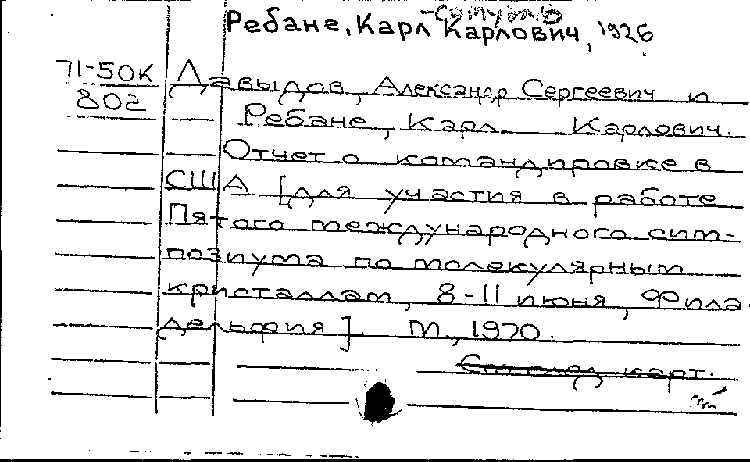 Ребане, Карл Карлович, 1926
71-50К
802
Давыдов, Александр Сергеевич и
Ребане, Карл Карлович.
Отчет о командировке в
США [для участия в работе
Пятого международного сим-
позиума по молекулярным
кристаллам, 8-11 июня, Фила-
дельфия]. М., 1970.
карт.